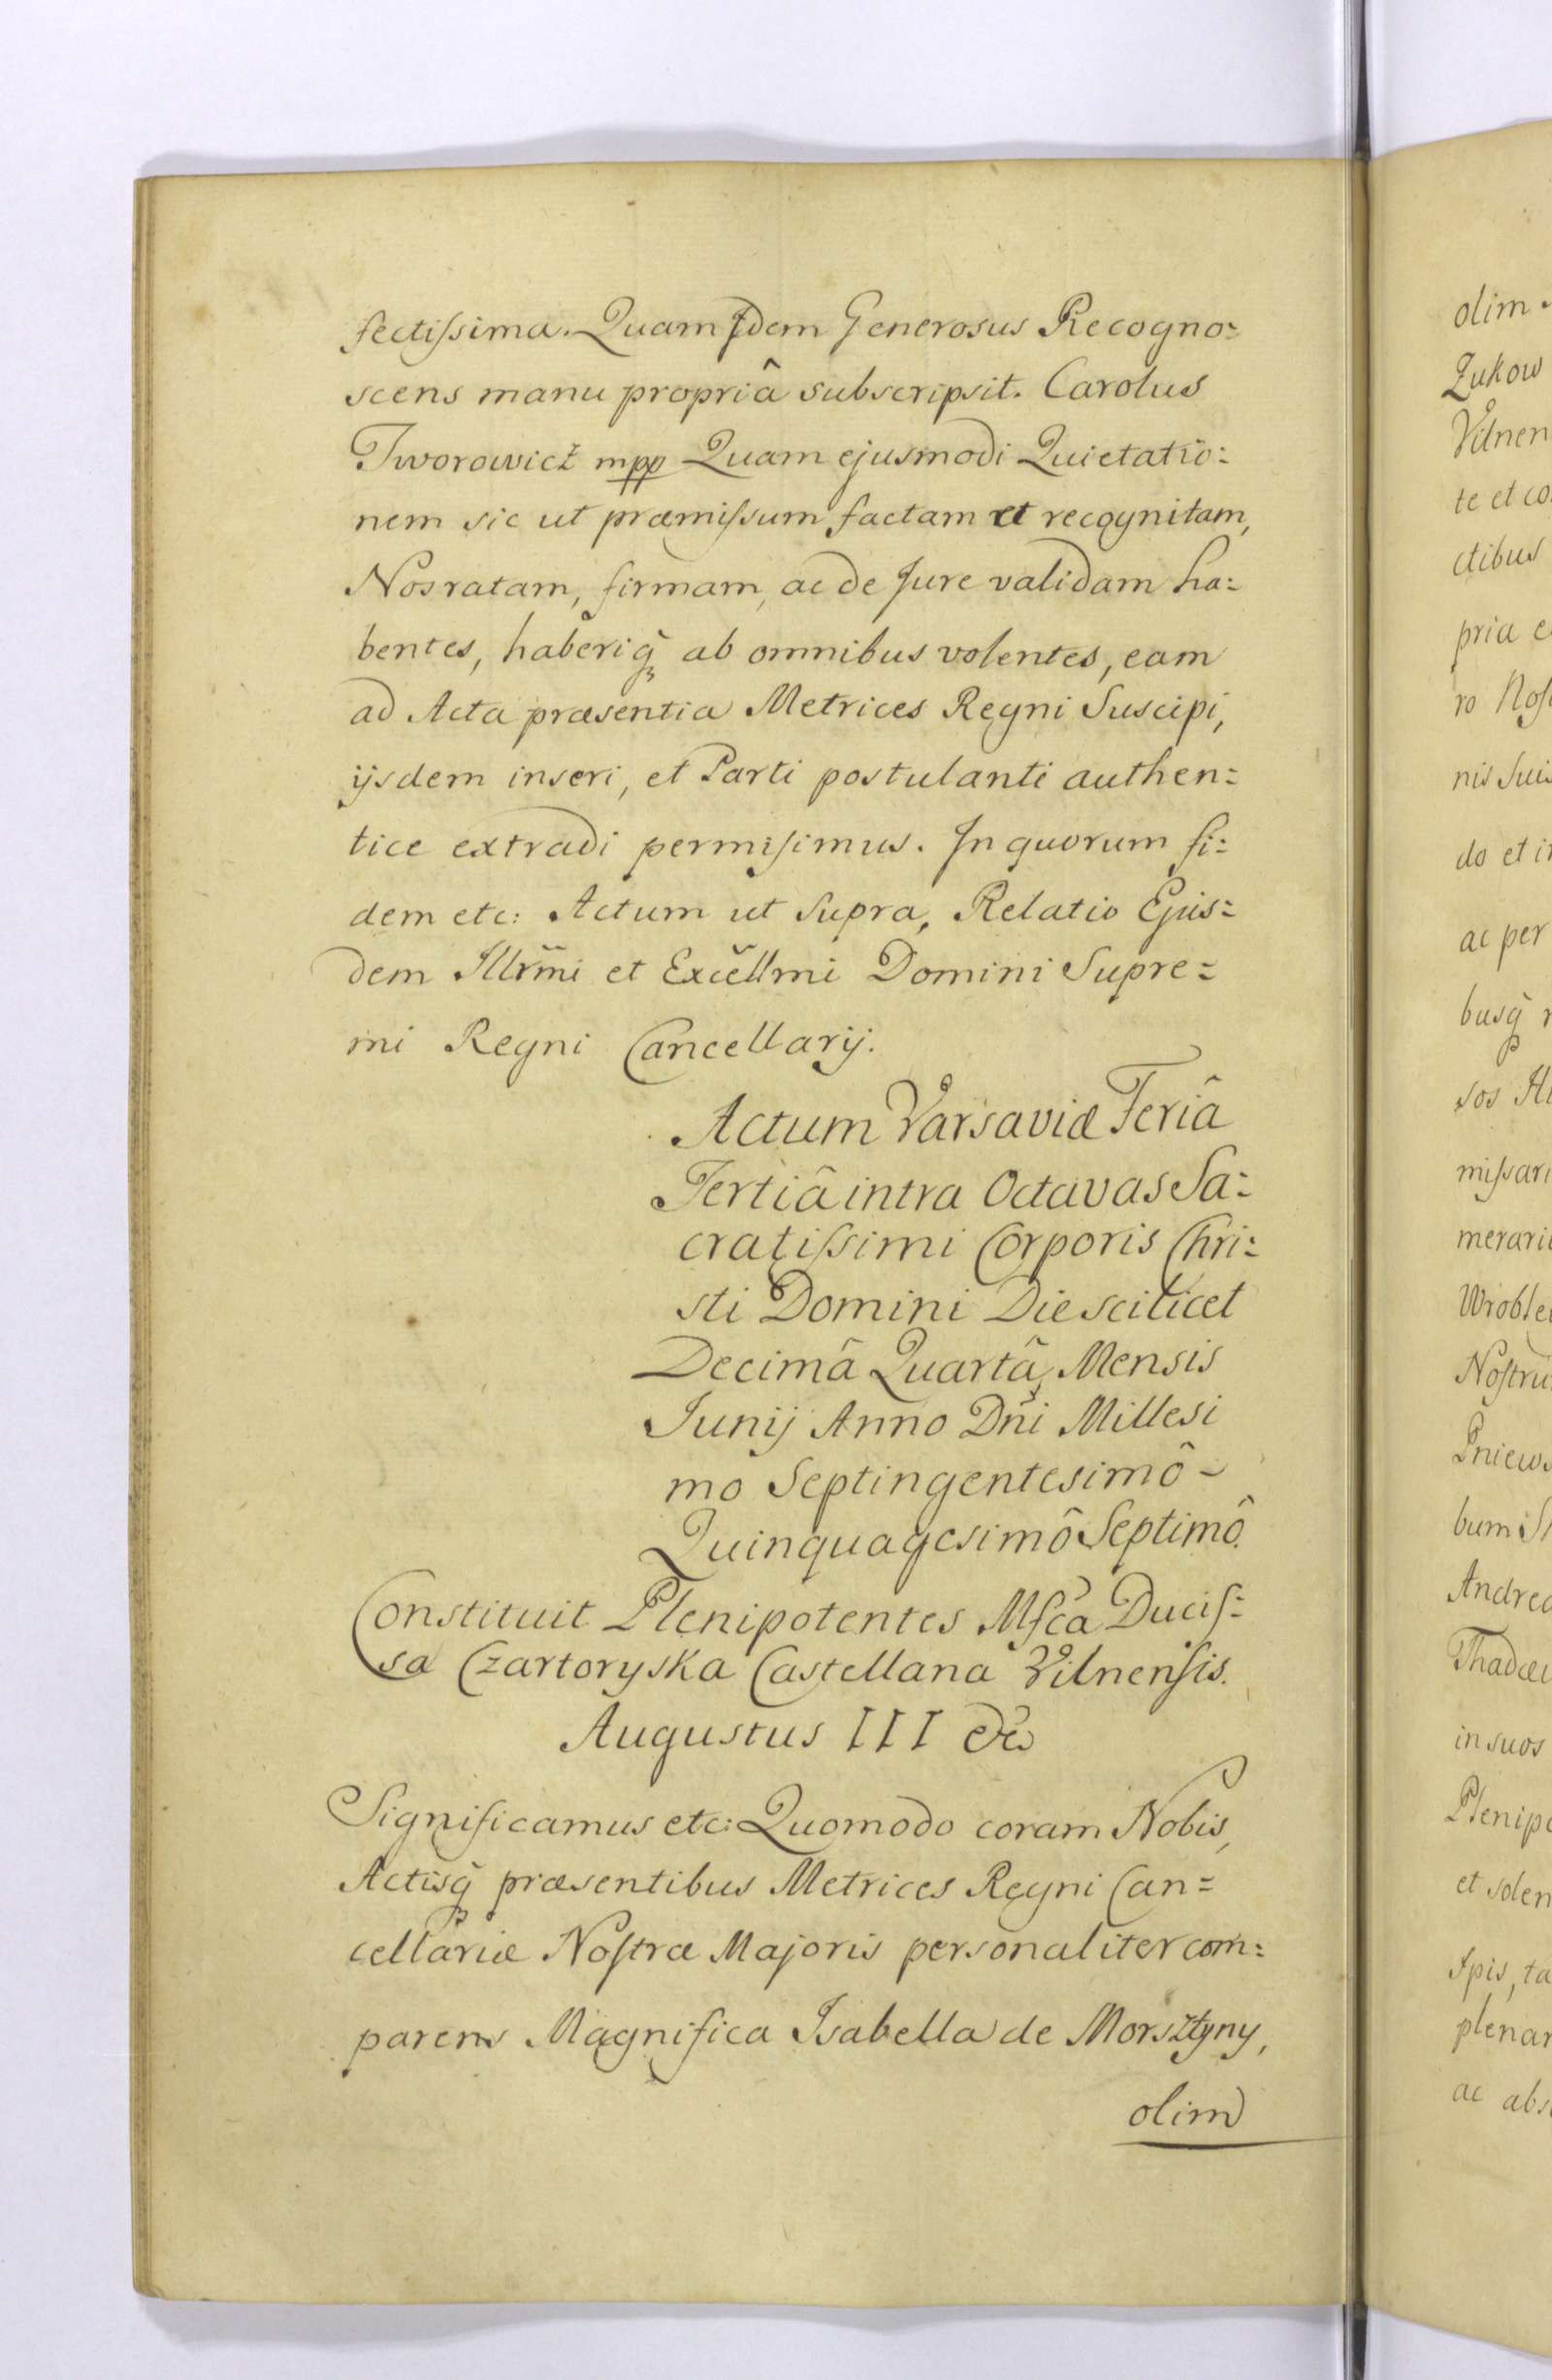 fectiſsima. Quam Idem Generosus Recogno:
scens manu propriâ subscripsit. Carolus
Tworowicz mpp Quam ejusmodi Quietatio:
nem sic ut præmiſsum factam et recognitam,
Nos ratam, firmam, ac de Jure validam ha:
bentes, haberiq̃ ab omnibus volentes, eam
ad Acta præsentia Metrices Regni Suscipi,
ijsdem inseri, et Parti postulanti authen:
tice extradi permiſimus. In quorum fi:
dem etc: Actum ut Supra, Relatio Ejus:
dem Illr̃mi et Excel̃lmi Domini Supre:
mi Regni Cancellarij.
Actum Varsaviæ Feriâ
Tertiâ intra Octavas Sa:
cratiſsimi Corporis Chri:
sti Domini Die scilicet
Decimâ Quartâ Mensis
Junij Anno Dñi Millesi
mo Septingentesimô
Quinquagesimô Septimô.
Constituit Plenipotentes Mfca Duciſ:
sa Czartoryska Castellana Vilnenſis.
Augustus III &c
Significamus etc: Quomodo coram Nobis,
Actisq̃ præsentibus Metrices Regni Can:
cellariæ Noſtræ Majoris personaliter com:
parens Magnifica Isabella de Morsztyny,
olim
olim
Zukow
Vilnen
te et co
ctibus
pria e
ro Noſ
nis Suis
do et i
ac per
busq̃
sos
miſsari
merari
Wroble
Noſtru
Pniew
bum
Andrea
Thadæu
in suos
Plenipo
et solen
Ipis, ta
plenar
ac abs